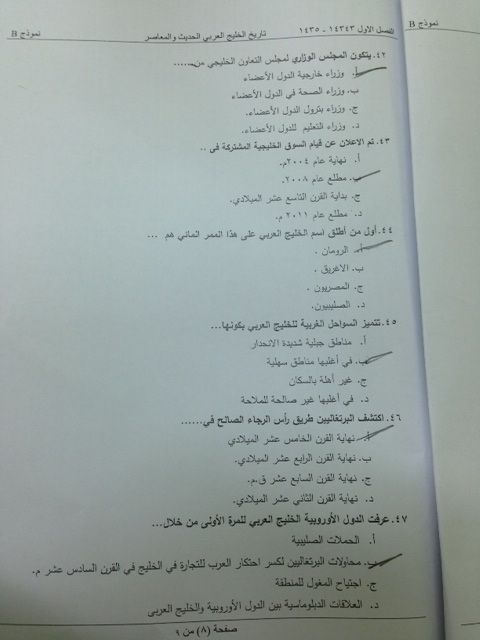 نموذج B
الفصل الاول ١٤٣٤٣ - ١٤٣٥
تاريخ الخليج العربي الحديث والمعاصر
نموذج B
٤٢. يتكون المجلس الوزاري لمجلس التعاون الخليجي من......
أ. وزراء خارجية الدول الأعضاء
ب. وزراء الصحة في الدول الأعضاء
ج. وزراء بترول الدول الأعضاء.
د. وزراء التعليم للدول الأعضاء.
٤٣. تم الاعلان عن قيام السوق الخليجية المشتركة في ..
أ. نهاية عام ٢٠٠٤م.
ب. مطلع عام ٢٠٠٨.
ج. بداية القرن التاسع عشر الميلادي.
د. مطلع عام ٢٠١١ م.
٤٤. أول من أطلق اسم الخليج العربي على هذا الممر المائي هم ...
أ. الرومان .
ب. الاغريق .
ج. المصريون .
د. الصليبيون.
٤٥. تتميز السواحل الغربية للخليج العربي بكونها...
أ. مناطق جبلية شديدة الانحدار
ب. في أغلبها مناطق سهلية
ج. غير أهلة بالسكان
د. في أغلبها غير صالحة للملاحة
٤٦. اكتشف البرتغاليين طريق رأس الرجاء الصالح في......
أ. نهاية القرن الخامس عشر الميلادي
ب. نهاية القرن الرابع عشر الميلادي.
ج. نهاية القرن السابع عشر ق.م.
د. نهاية القرن الثاني عشر الميلادي.
٤٧. عرفت الدول الأوروبية الخليج العربي للمرة الأولى من خلال...
أ. الحملات الصليبية
ب. محاولات البرتغاليين لكسر احتكار العرب للتجارة في الخليج في القرن السادس عشر م.
ج. اجتياح المغول للمنطقة
د. العلاقات الدبلوماسية بين الدول الأوروبية والخليج العربى
صفحة (٨) من ٩